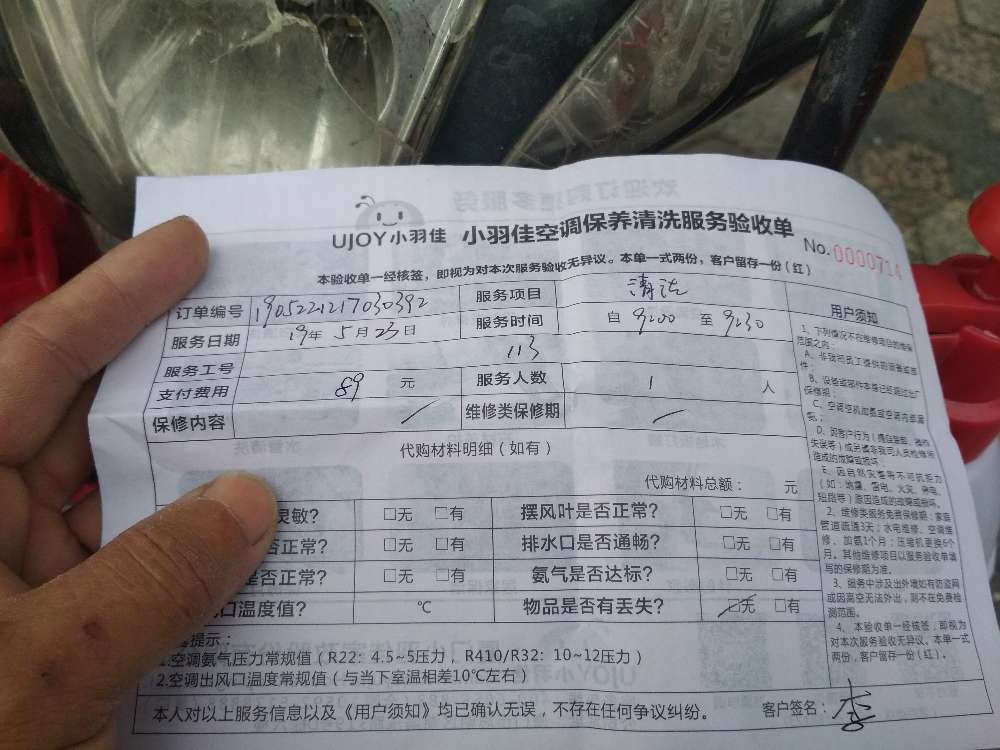 UJOY小羽佳 小羽佳空调保养清洗服务验收单
No.0000714
本验收单一经核签，即视为对本次服务验收无异议。本单一式两份，客户留存一份(红)
订单编号 19052212170303​92 服务项目 清洗
服务日期 19年 5月 23日 服务时间 自 9:00 至 9:30
服务工号 113
支付费用 89 元 服务人数 1 人
保修内容 维修类保修期
代购材料明细（如有）
代购材料总额： 元
灵敏？ □无 □有 摆风叶是否正常？ □无 □有
否正常？ □无 □有 排水口是否通畅？ □无 □有
是否正常？ □无 □有 氨气是否达标？ □无 □有
口温度值？ ℃ 物品是否有丢失？ □无 □有
提示：
1.空调氨气压力常规值（R22：4.5~5压力，R410/R32：10~12压力）
2.空调出风口温度常规值（与当下室温相差10℃左右）
本人对以上服务信息以及《用户须知》均已确认无误，不存在任何争议纠纷。 客户签名：李
用户须知
1、下列情况不在维修项目的维保
范围之内：
A、非我司员工提供的
B、设备或部件本身已经超过出厂
保修期；
C、空调空机加氨或空调内部漏
氨；
D、因客户行为
失误等）或另请非我司人员检修所
造成的故障或损坏；
E、因自然灾害等不可抗拒力
（如：地震、雷电、火灾、停电、
短路等）原因造成的故障或损坏。
2、维修类服务免费保修期：家庭
管道疏通3天；水电维修、空调维
修、加氨1个月；压缩机更换6个
月。其他维修项目以服务验收单填
写的保修期为准。
3、服务中涉及出外墙如有防盗网
或因高空无法外出，则不在免费检
测范围。
4、本验收单一经核签，即视为
对本次服务验收无异议。本单一式
两份，客户留存一份（红）。